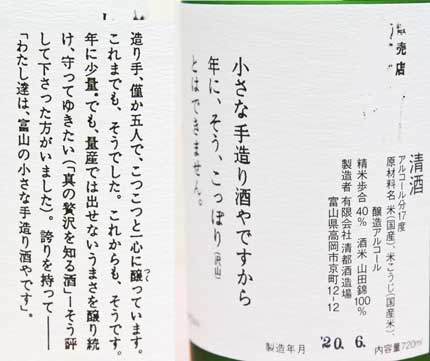 造り手、僅か五人で、こつこつと心に醸っています。
つく
これまでも、そうでした。これからも、そうです。
年に少量。でも、量産では出せないうまさを醸り続
け、守ってゆきたい(「真の贅沢を知る酒」—そう評
して下さった方がいました)。誇りを持って——
「わたし達は、富山の小さな手造り酒やです」。
販売店
清酒
アルコール分17度
原材料名 米(国産)、米こうじ(国産米)、
醸造アルコール
精米歩合 40% 酒米 山田錦100%
製造者 有限会社 清都酒造場
富山県高岡市京町12-12
小さな手造り酒やですから
年に、そう、こっぽり(沢山)
とはできません。
製造年月 '20. 6.
内容量720ml